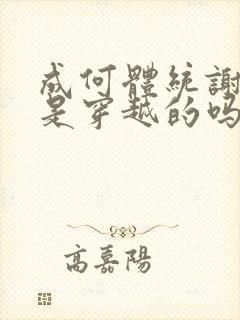 成何體統謝
是穿越的吗
高嘉陽